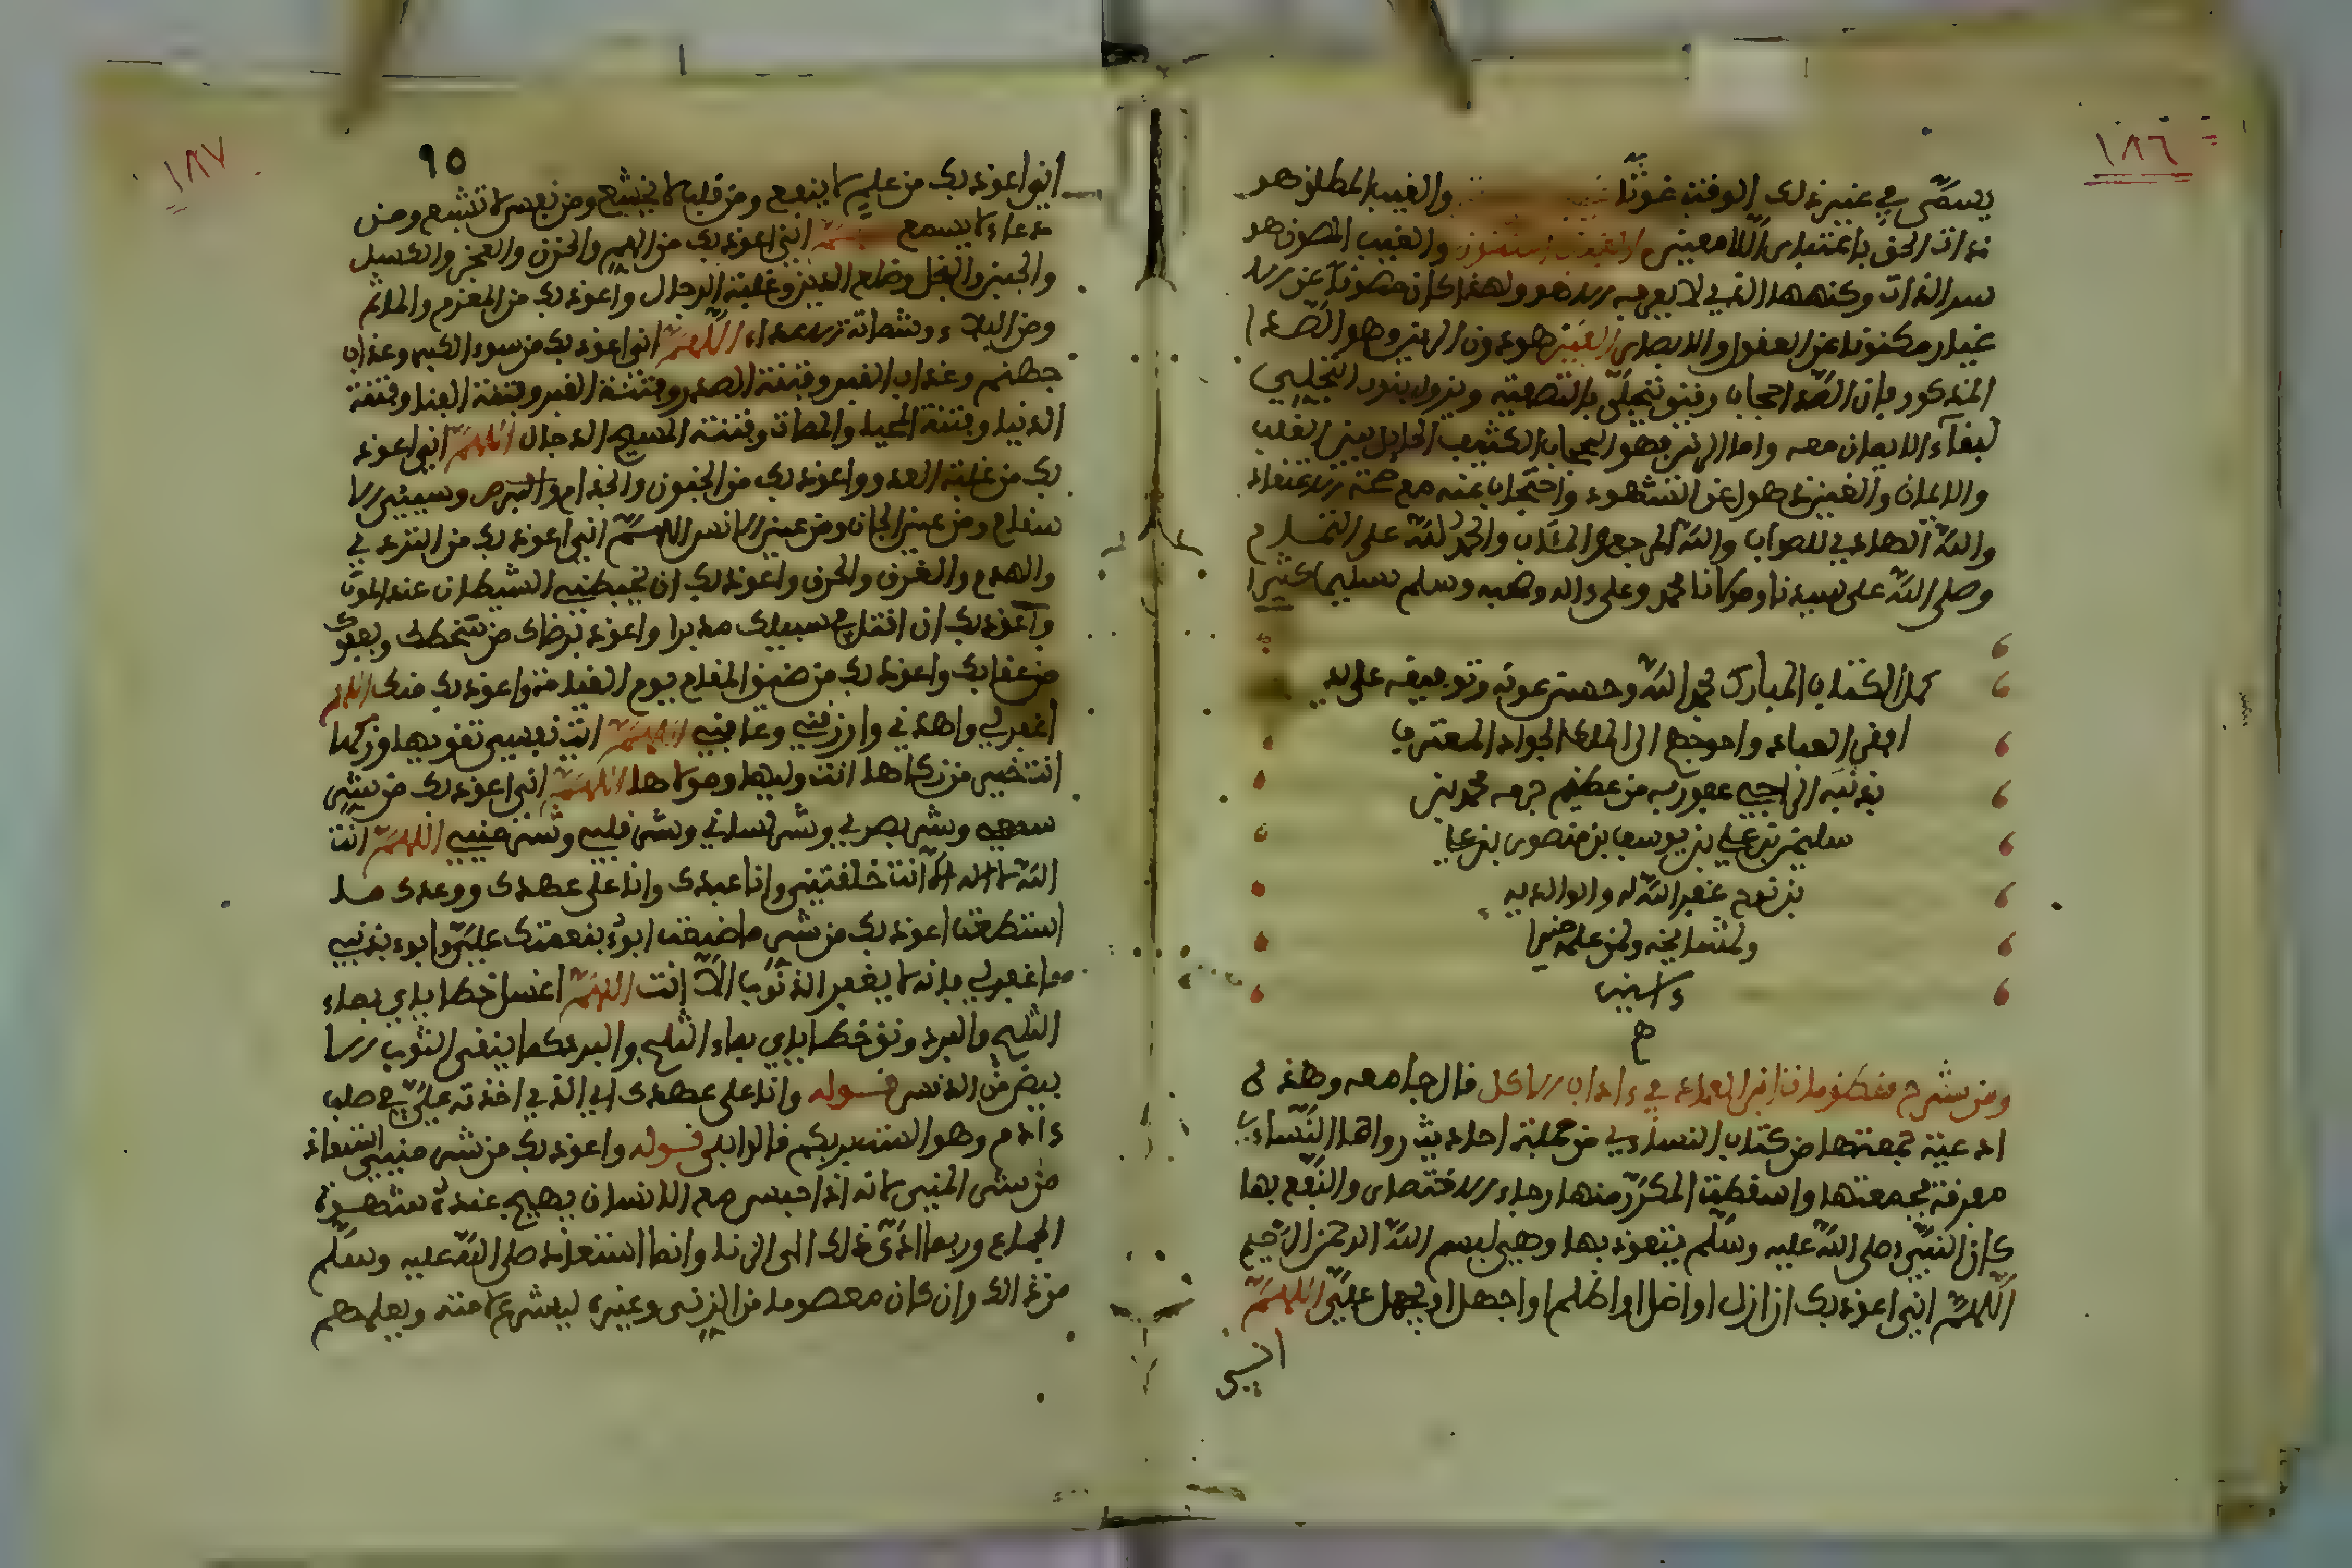 ١٨٦
يسمى في غير ذلك الوقت غوثا والغيب المطلق هو
ذات الحق باعتبار اللا تعيين والغيب المصون هو
سر الذات وكنهها الذي لا يعرفه الا هو ولهذا كان مصونا عن الا
غيار مكنونا عن العقول والابصار الغين هو دون الرين وهو الصدا
المذكور فإن الصدا حجاب رقيق يتجلى بالتصفية ويزول بنور التجلي
لبقاء الايمان معه واما الرين فهو الحجاب الكثيف الحايل بين القلب
والايمان والغين ذهول عن الشهود واحتجاب عنه مع صحة الاعتقاد
والله الهادي للصواب واليه المرجع والمئاب والحمد لله على التمام
وصلى الله على سيدنا ومولانا محمد وعلى ءاله وصحبه وسلم تسليما كثيرا
كمل الكتاب المبارك بحمد الله وحسن عونه وتوفيقه على يد
افقر العباد واحوجهم الى الملك الجواد المعترف
بذنبه الراجي عفو ربه من عظيم جرمه محمد بن
سليمن بن علي بن يوسف بن منصور بن علي
بن نوح غفر الله له ولوالديه
ولمشايخه ولمن علمه خيرا
ءامين
ومن شرح منظومة ابن العماد في ءاداب الاكل قال جامعه وهذه
ادعية جمعتها من كتاب النساءي من جملة احاديث رواها النساءي
مفرقة فجمعتها واسقطت المكرر منها رجاء الاختصار والنفع بها
كان النبي صلى الله عليه وسلم يتعوذ بها وهي بسم الله الرحمن الرحيم
اللهم اني اعوذ بك ان ازل او اضل او اظلم او اجهل او يجهل علي اللهم
اني
١٨٧
٩٥
اني اعوذ بك من علم لا ينفع ومن قلب لا يخشع ومن نفس لا تشبع ومن
دعاء لا يسمع اللهم اني اعوذ بك من الهم والحزن والعجز والكسل
والجبن والبخل وضلع الدين وغلبة الرجال واعوذ بك من المغرم والماثم
ومن البلاء وشماتة الاعداء اللهم اني اعوذ بك من سوء الكبر وعذاب
جهنم وعذاب القبر وفتنة الصدر وفتنة القبر وفتنة الغنا وفتنة
الدنيا وفتنة المحيا والممات وفتنة المسيح الدجال اللهم اني اعوذ
بك من غلبة العدو واعوذ بك من الجنون والجذام والبرص وسيئ الا
سقام ومن عين الجان ومن عين الانس اللهم اني اعوذ بك من التردي
والهدم والغرق والحرق واعوذ بك ان يتخبطني الشيطان عند الموت
واعوذ بك ان اقتل في سبيلك مدبرا واعوذ برضاك من سخطك وبعفوك
من عقابك واعوذ بك من ضيق المقام يوم القيامة واعوذ بك منك اللهم
اغفر لي واهدني وارزقني وعافني اللهم ءات نفسي تقويها وزكها
انت خير من زكاها انت وليها ومولاها اللهم اني اعوذ بك من شر
سمعي وشر بصري وشر لساني وشر قلبي وشر منيي اللهم انت
الله لا اله الا انت خلقتني وانا عبدك وانا على عهدك ووعدك ما
استطعت اعوذ بك من شر ما صنعت ابوء بنعمتك علي وابوء بذنبي
فاغفر لي فانه لا يغفر الذنوب الا انت اللهم اغسل خطاياي بماء
الثلج والبرد ونق خطاياي بماء الثلج والبرد كما ينقى الثوب الا
بيض من الدنس قوله وانا على عهدك اي الذي اخذته علي في صلب
ءادم وهو الست بربكم قالوا بلى قوله واعوذ بك من شر منيي استعاذ
من شر المني لانه اذا احبس مع الانسان يهيج عنده شهوة
الجماع وربما ادى ذلك الى الزنا وانما استعاذ صلى الله عليه وسلم
من ذلك وان كان معصوما من الزنى وغيره ليشرع لامته ويعلمهم